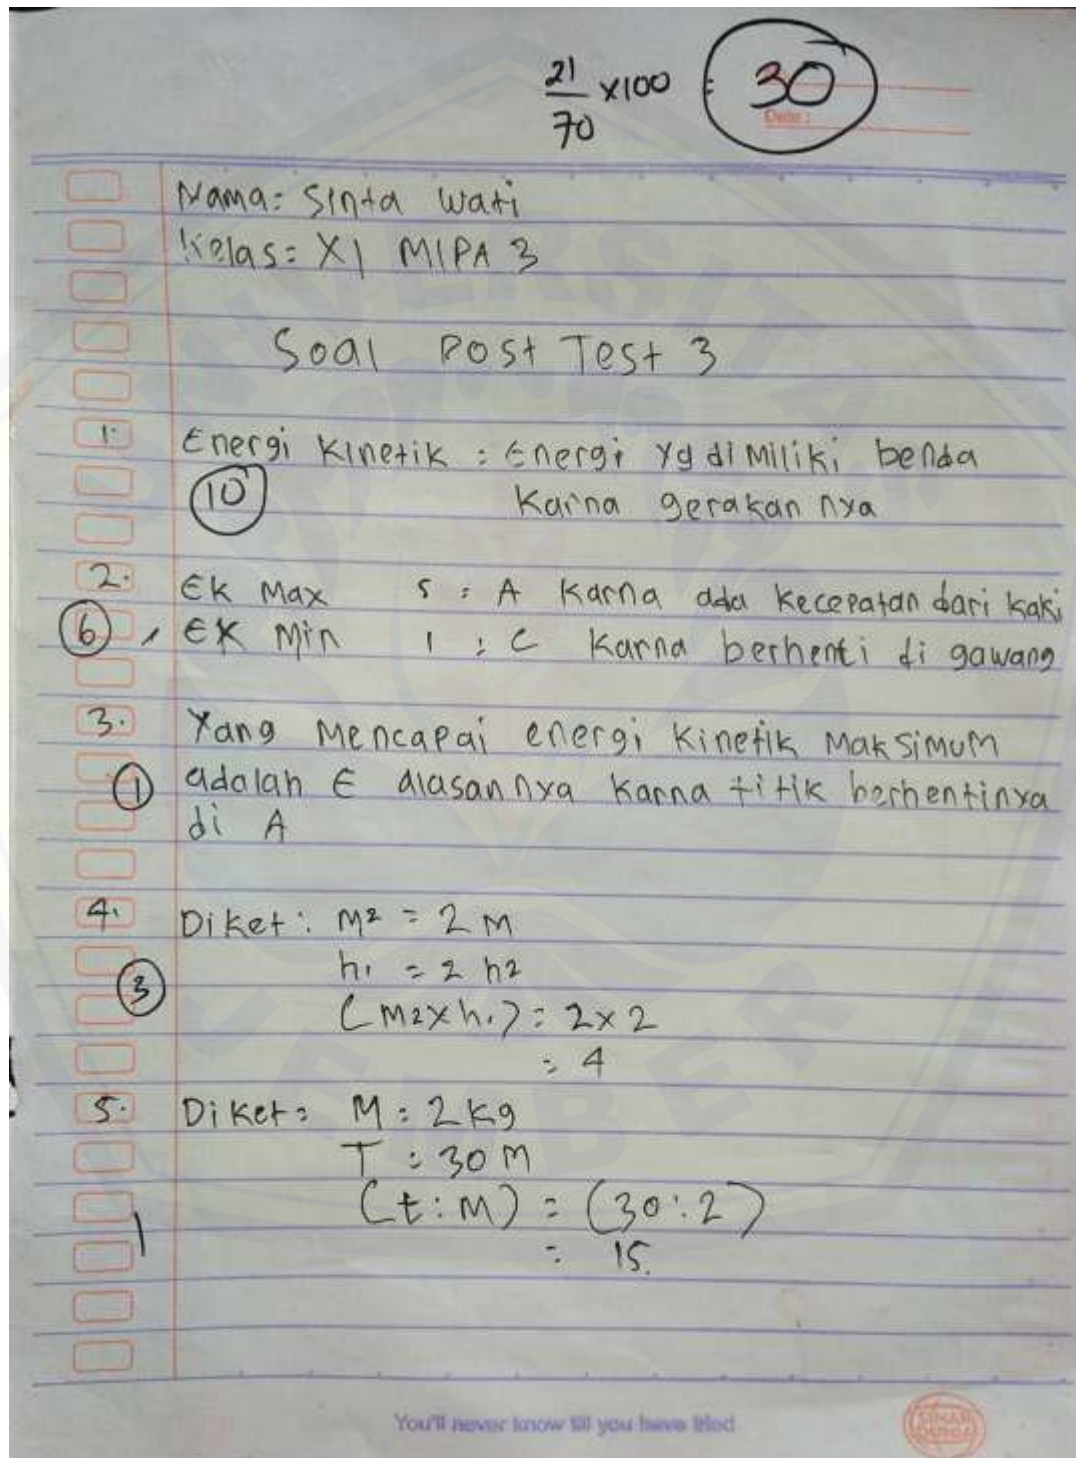 21/70 x100 = 30
Date :
Nama: Sinta Wati
Kelas: XI MIPA 3
Soal Post Test 3
1. Energi Kinetik : Energi yg di Miliki benda
10
Karna gerakan nya
2. EK Max 5 : A Karna ada kecepatan dari kaki
6 EK Min 1 : C Karna berhenti di gawang
3. Yang Mencapai energi Kinetik Maksimum
1 adalah E alasannya Karna titik berhentinya
di A
4. Diket : M2 = 2 M
h1 = 2 h2
3
(M2xh1) = 2x2
= 4
5. Diket : M : 2 kg
T : 30 M
(t : M) = (30 : 2)
1
= 15.
You'll never know till you have tried
SINAR DUNIA
UNIVERSITAS JEMBER